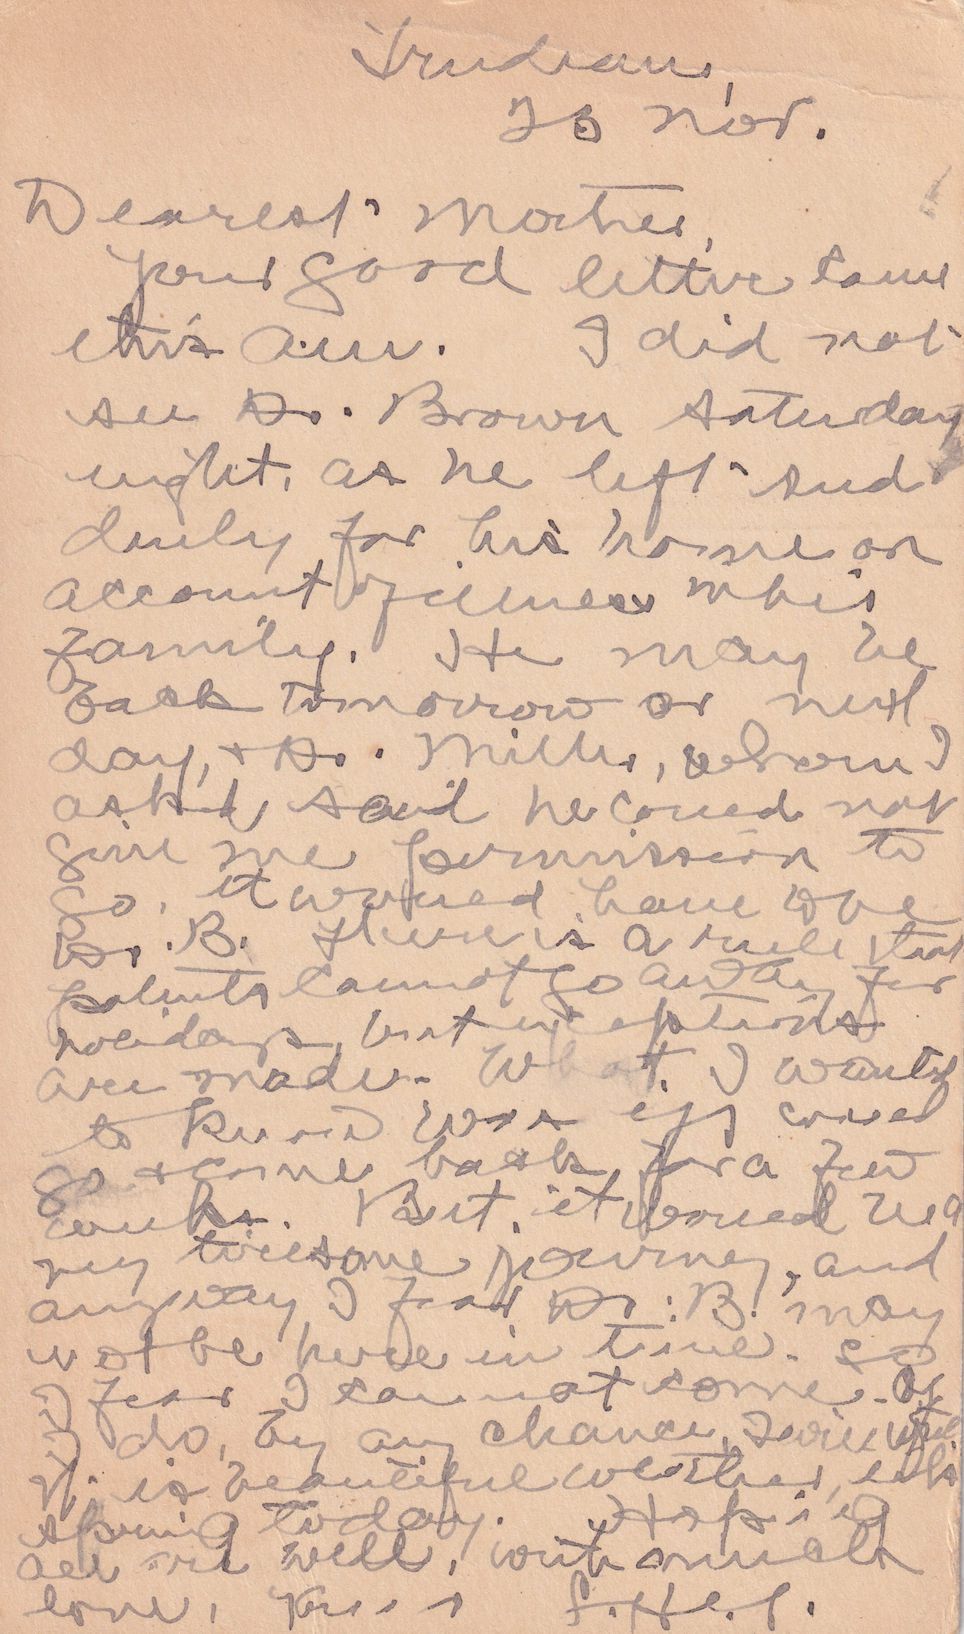 Trudeau,
26 Nov.
Dearest Mother,
Your good letter came
this a.m. I did not
see Dr. Brown Saturday
night, as he left sud
denly for his home on
account of illness in his
family. He may be
back tomorrow or next
day, & Dr. Miller, whom I
asked said he could not
give me permission to
go, it would have to be
Dr. B. There is a rule that
patients cannot go away for
holidays, but exceptions
are made. What I wanted
to know was if I could
go & come back for a few
weeks. But, it would be a
very tiresome journey, and
anyway I fear Dr. B. may
not be here in time. So
I fear I cannot come. If
I do, by any chance, I will write
It is beautiful weather, like
spring today. Hoping
all are well, with much
love, Yours